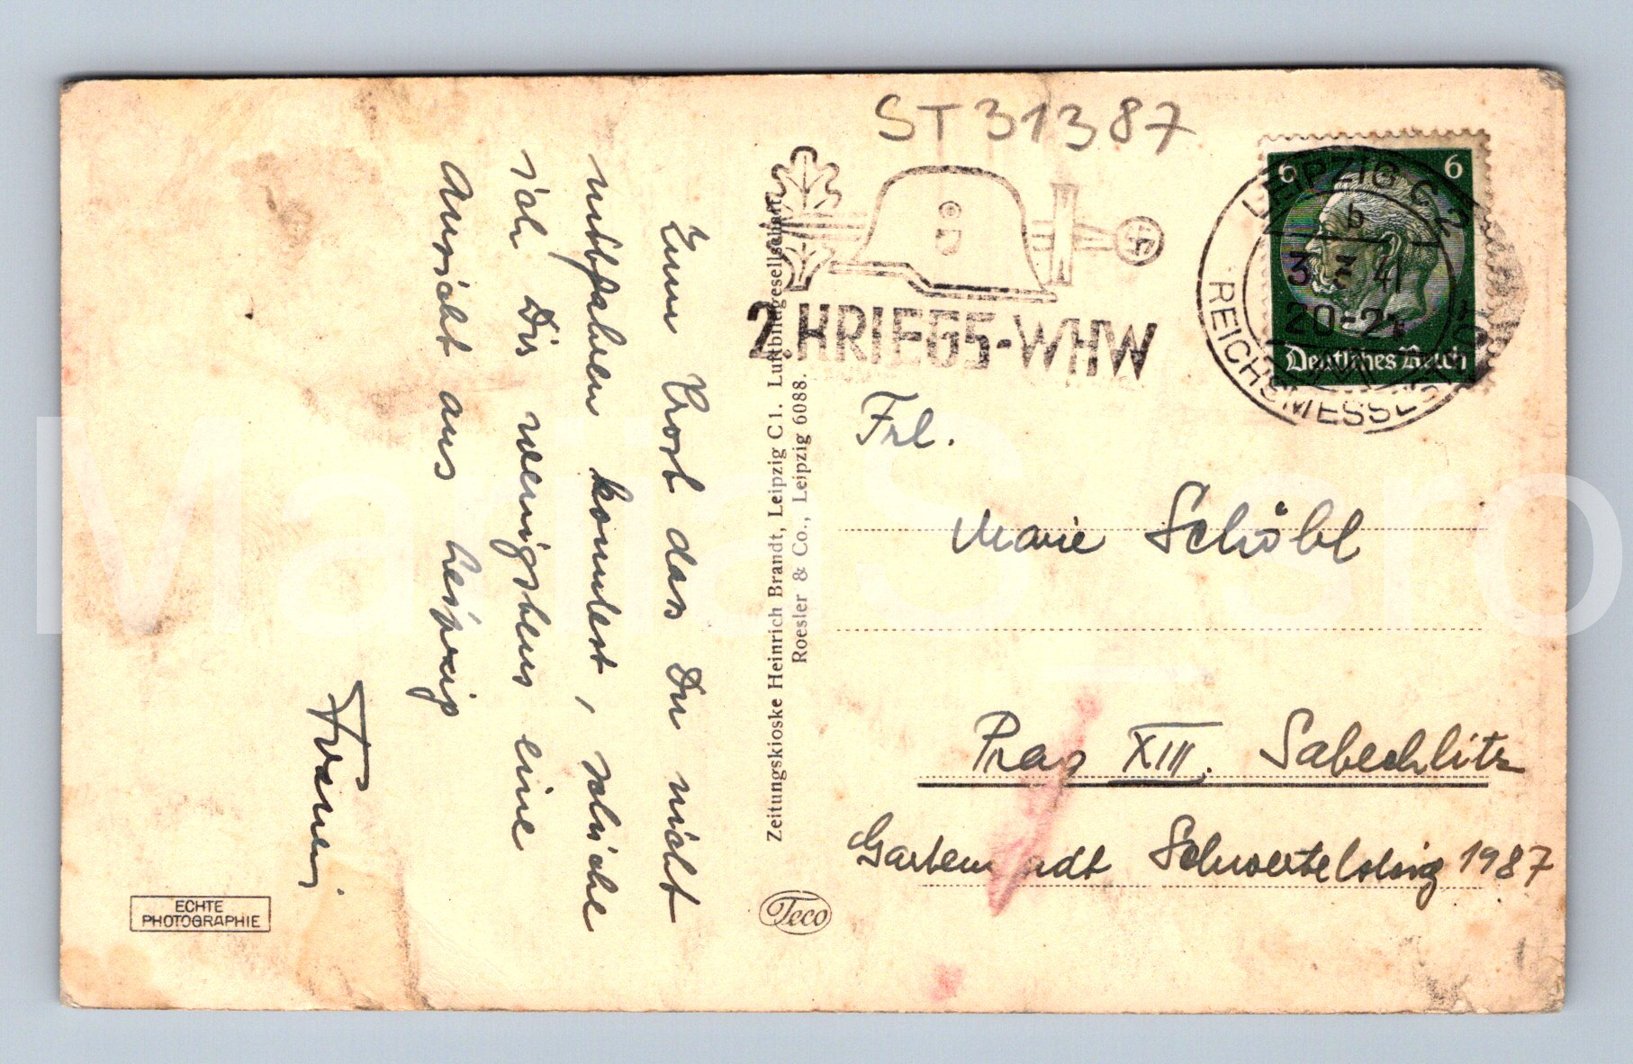 ST 31387
Zum Trost das Du nicht
mitfahren konntest, schicke
ich Dir wenigstens eine
Ansicht aus Leipzig
Zeitungskioske Heinrich Brandt, Leipzig C 1. Luftbildgesellschaft,
Roesler & Co., Leipzig 6088.
2. KRIEGS-WHW
LEIPZIG C 2
b
3. 3. 41
20-21
REICHSMESSESTADT
6 6
Deutsches Reich
Frl.
Marie Schöbl
Prag XIII. Sabechlitz
Gartenstadt 1987
ECHTE
PHOTOGRAPHIE
Teco